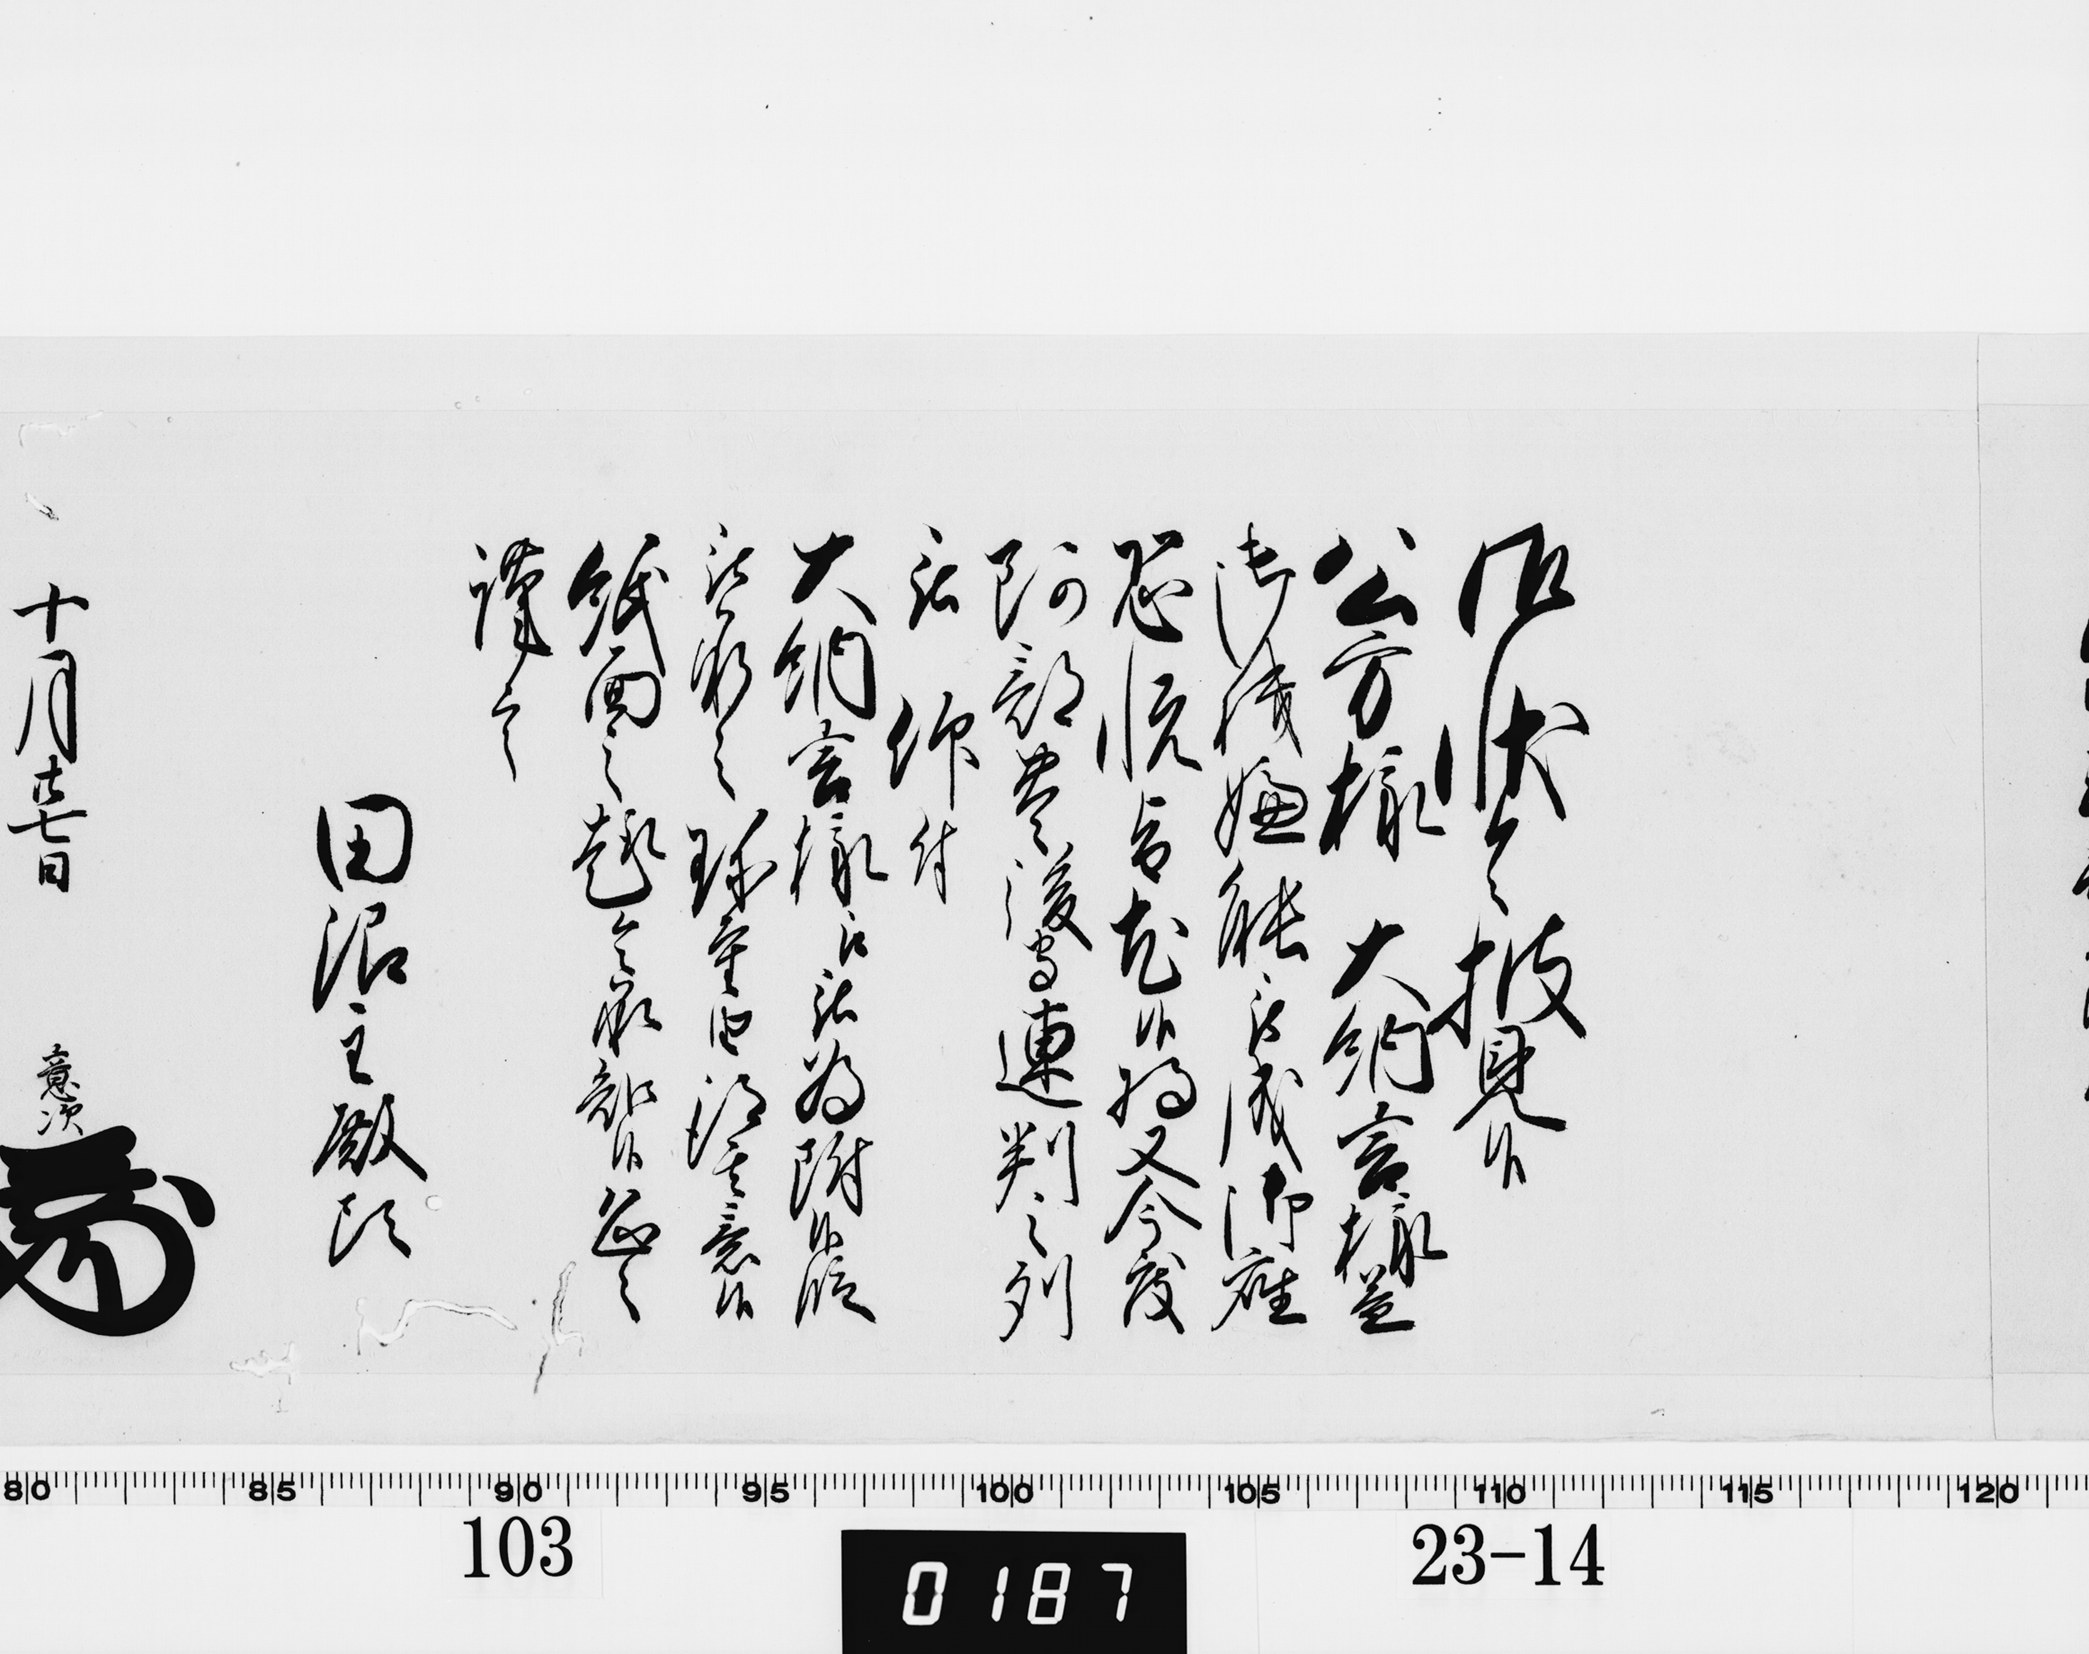 御状令披見候
公方様 大納言様益
御機嫌能被成御座
恐悦旨尤候将又今度
阿部豊後守連判之列
被 仰付
大納言様江被為附候段
被承之珍重由得其意候
紙面之趣令承知候恐々
謹言
田沼主殿頭
十月廿七日
意次
80 85 90 95 100 105 110 115 120
103
0187
23-14